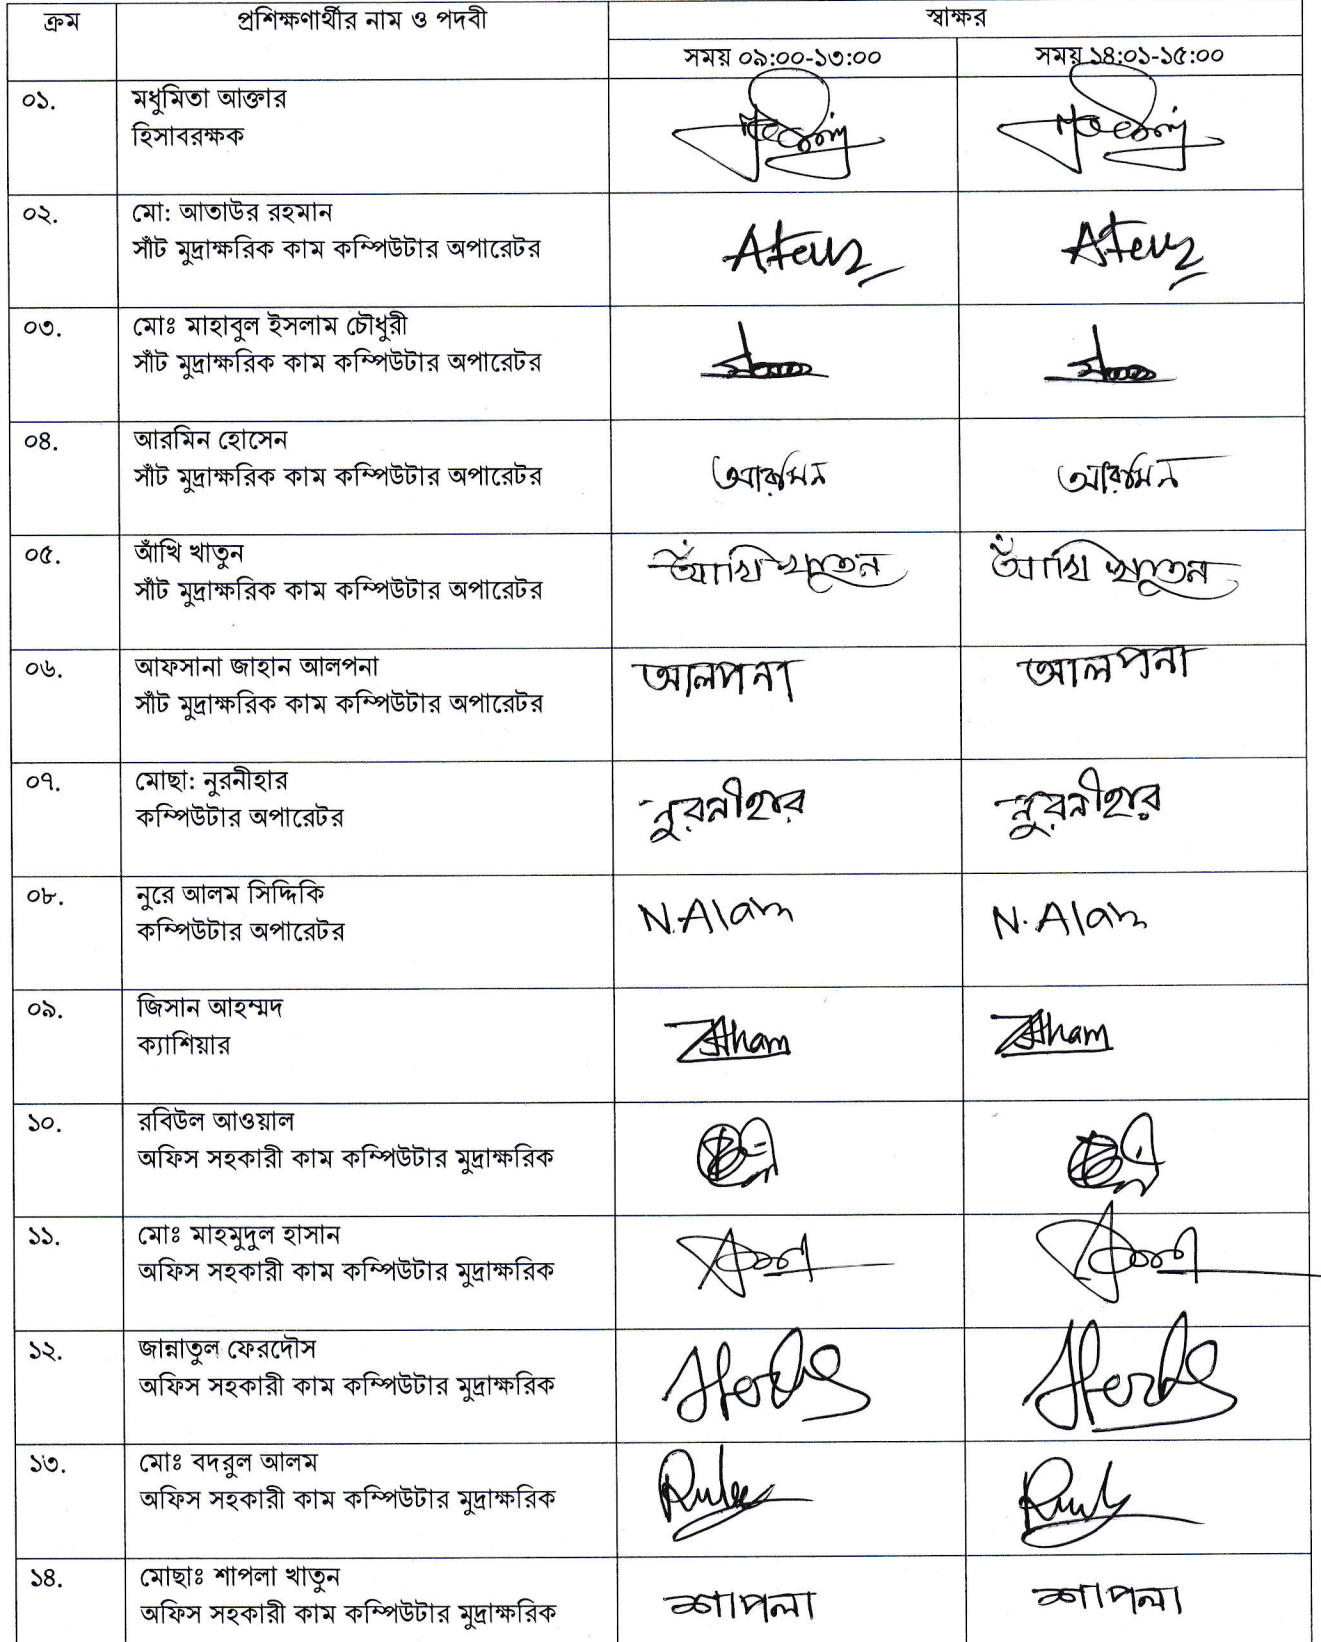 ক্রম প্রশিক্ষণার্থীর নাম ও পদবী স্বাক্ষর
সময় ০৯:০০-১৩:০০ সময় ১৪:০১-১৫:০০
০১. মধুমিতা আক্তার
হিসাবরক্ষক
০২. মো: আতাউর রহমান
সাঁট মুদ্রাক্ষরিক কাম কম্পিউটার অপারেটর
০৩. মোঃ মাহাবুল ইসলাম চৌধুরী
সাঁট মুদ্রাক্ষরিক কাম কম্পিউটার অপারেটর
০৪. আরমিন হোসেন
সাঁট মুদ্রাক্ষরিক কাম কম্পিউটার অপারেটর আরমিন আরমিন
০৫. আঁখি খাতুন আঁখি খাতুন আঁখি খাতুন
সাঁট মুদ্রাক্ষরিক কাম কম্পিউটার অপারেটর
০৬. আফসানা জাহান আলপনা আলপনা আলপনা
সাঁট মুদ্রাক্ষরিক কাম কম্পিউটার অপারেটর
০৭. মোছা: নুরনীহার
কম্পিউটার অপারেটর নুরনীহার নুরনীহার
০৮. নুরে আলম সিদ্দিকি
কম্পিউটার অপারেটর N.Alam N.Alam
০৯. জিসান আহম্মদ
ক্যাশিয়ার
১০. রবিউল আওয়াল
অফিস সহকারী কাম কম্পিউটার মুদ্রাক্ষরিক
১১. মোঃ মাহমুদুল হাসান
অফিস সহকারী কাম কম্পিউটার মুদ্রাক্ষরিক
১২. জান্নাতুল ফেরদৌস
অফিস সহকারী কাম কম্পিউটার মুদ্রাক্ষরিক
১৩. মোঃ বদরুল আলম
অফিস সহকারী কাম কম্পিউটার মুদ্রাক্ষরিক
১৪. মোছাঃ শাপলা খাতুন
অফিস সহকারী কাম কম্পিউটার মুদ্রাক্ষরিক শাপলা শাপলা